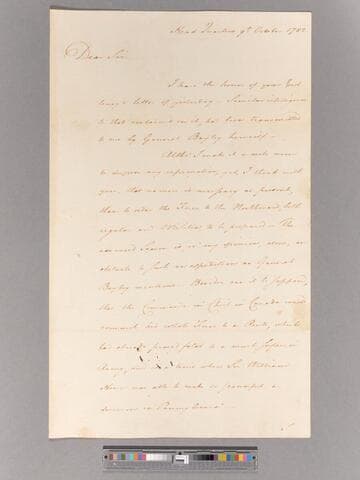 Head Quarters 9th October 1782
Dear Sir
I have the honor of your Excel
lency's letter of yesterday – Similar intelligence
to that contained in it, has been transmitted
to me by General Bayley himself –
Altho' I make it a rule never
to despise any information, yet I think with
you, that no more is necessary at present,
than to order the Force to the Northward, both
regular and Militia to be prepared – The
advanced Season is in my opinion, alone, an
obstacle to such an expedition as General
Bayley mentions – Besides are it to
that the Commander in Chief in Canada would
commit his whole Force to a Route, which
has already proved fatal to a much Superior
Army, and at a time when Sir William
Howe was able to make so powerful a
diversion in Pennsylvania